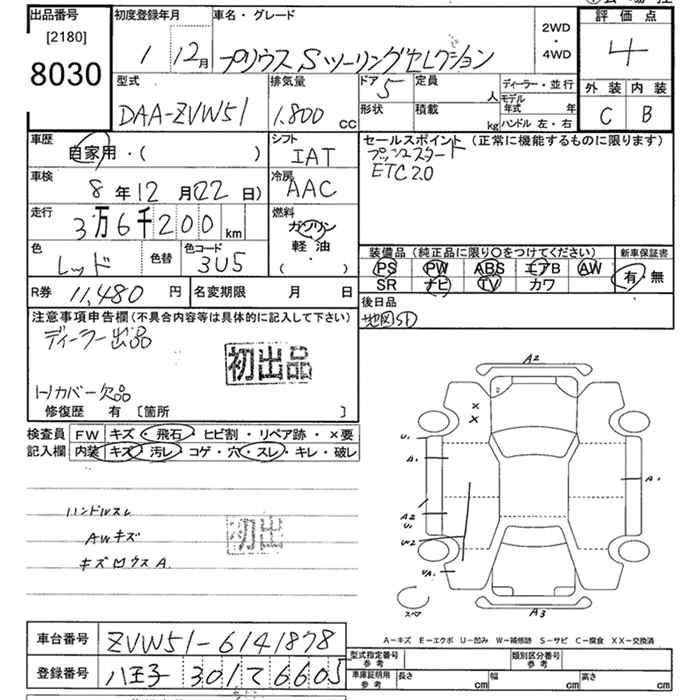 出品番号
[2180]
8030
初度登録年月
1 12月
車名・グレード
プリウス Sツーリングセレクション
2WD
・
4WD
評価点
4
外装 内装
C B
型式
DAA-ZVW51
排気量
1.800 cc
ドア 5
形状
定員 人
積載 kg
ディーラー・並行
モデル年式 年
ハンドル 左・右
車歴
自家用・( )
シフト
IAT
車検
8年12月(22日)
冷房
AAC
走行
3万6千200km
燃料
ガソリン
軽油
( )
色
レッド
色替
色コード
3U5
R券 11,480円
名変期限 月 日
セールスポイント(正常に機能するものに限ります)
プッシュスタート
ETC2.0
装備品(純正品に限り○をつけてください)
PS PW ABS エアB AW
SR ナビ TV カワ
新車保証書
有 無
後日品
地図SD
注意事項申告欄(不具合内容等は具体的に記入して下さい)
ディーラー出品
初出品
トノカバー欠品
修復歴 有 [箇所 ]
検査員
記入欄
FW キズ・飛石・ヒビ割・リペア跡・×要
内装 キズ・汚レ・コゲ・穴・スレ・キレ・破レ
ハンドルスレ
AWキズ
初出
A2
U1
A1
A1
A2
U1
W2
UA1
スペア
A3
A−キズ E−エクボ U−凹み W−補修跡 S−サビ C−腐食 XX−交換済
車台番号 ZVW51-6141878
登録番号 八王子 301 て 6605
型式指定番号
参考
類別区分番号
参考
車庫証明用
参考
長さ cm
幅 cm
高さ cm